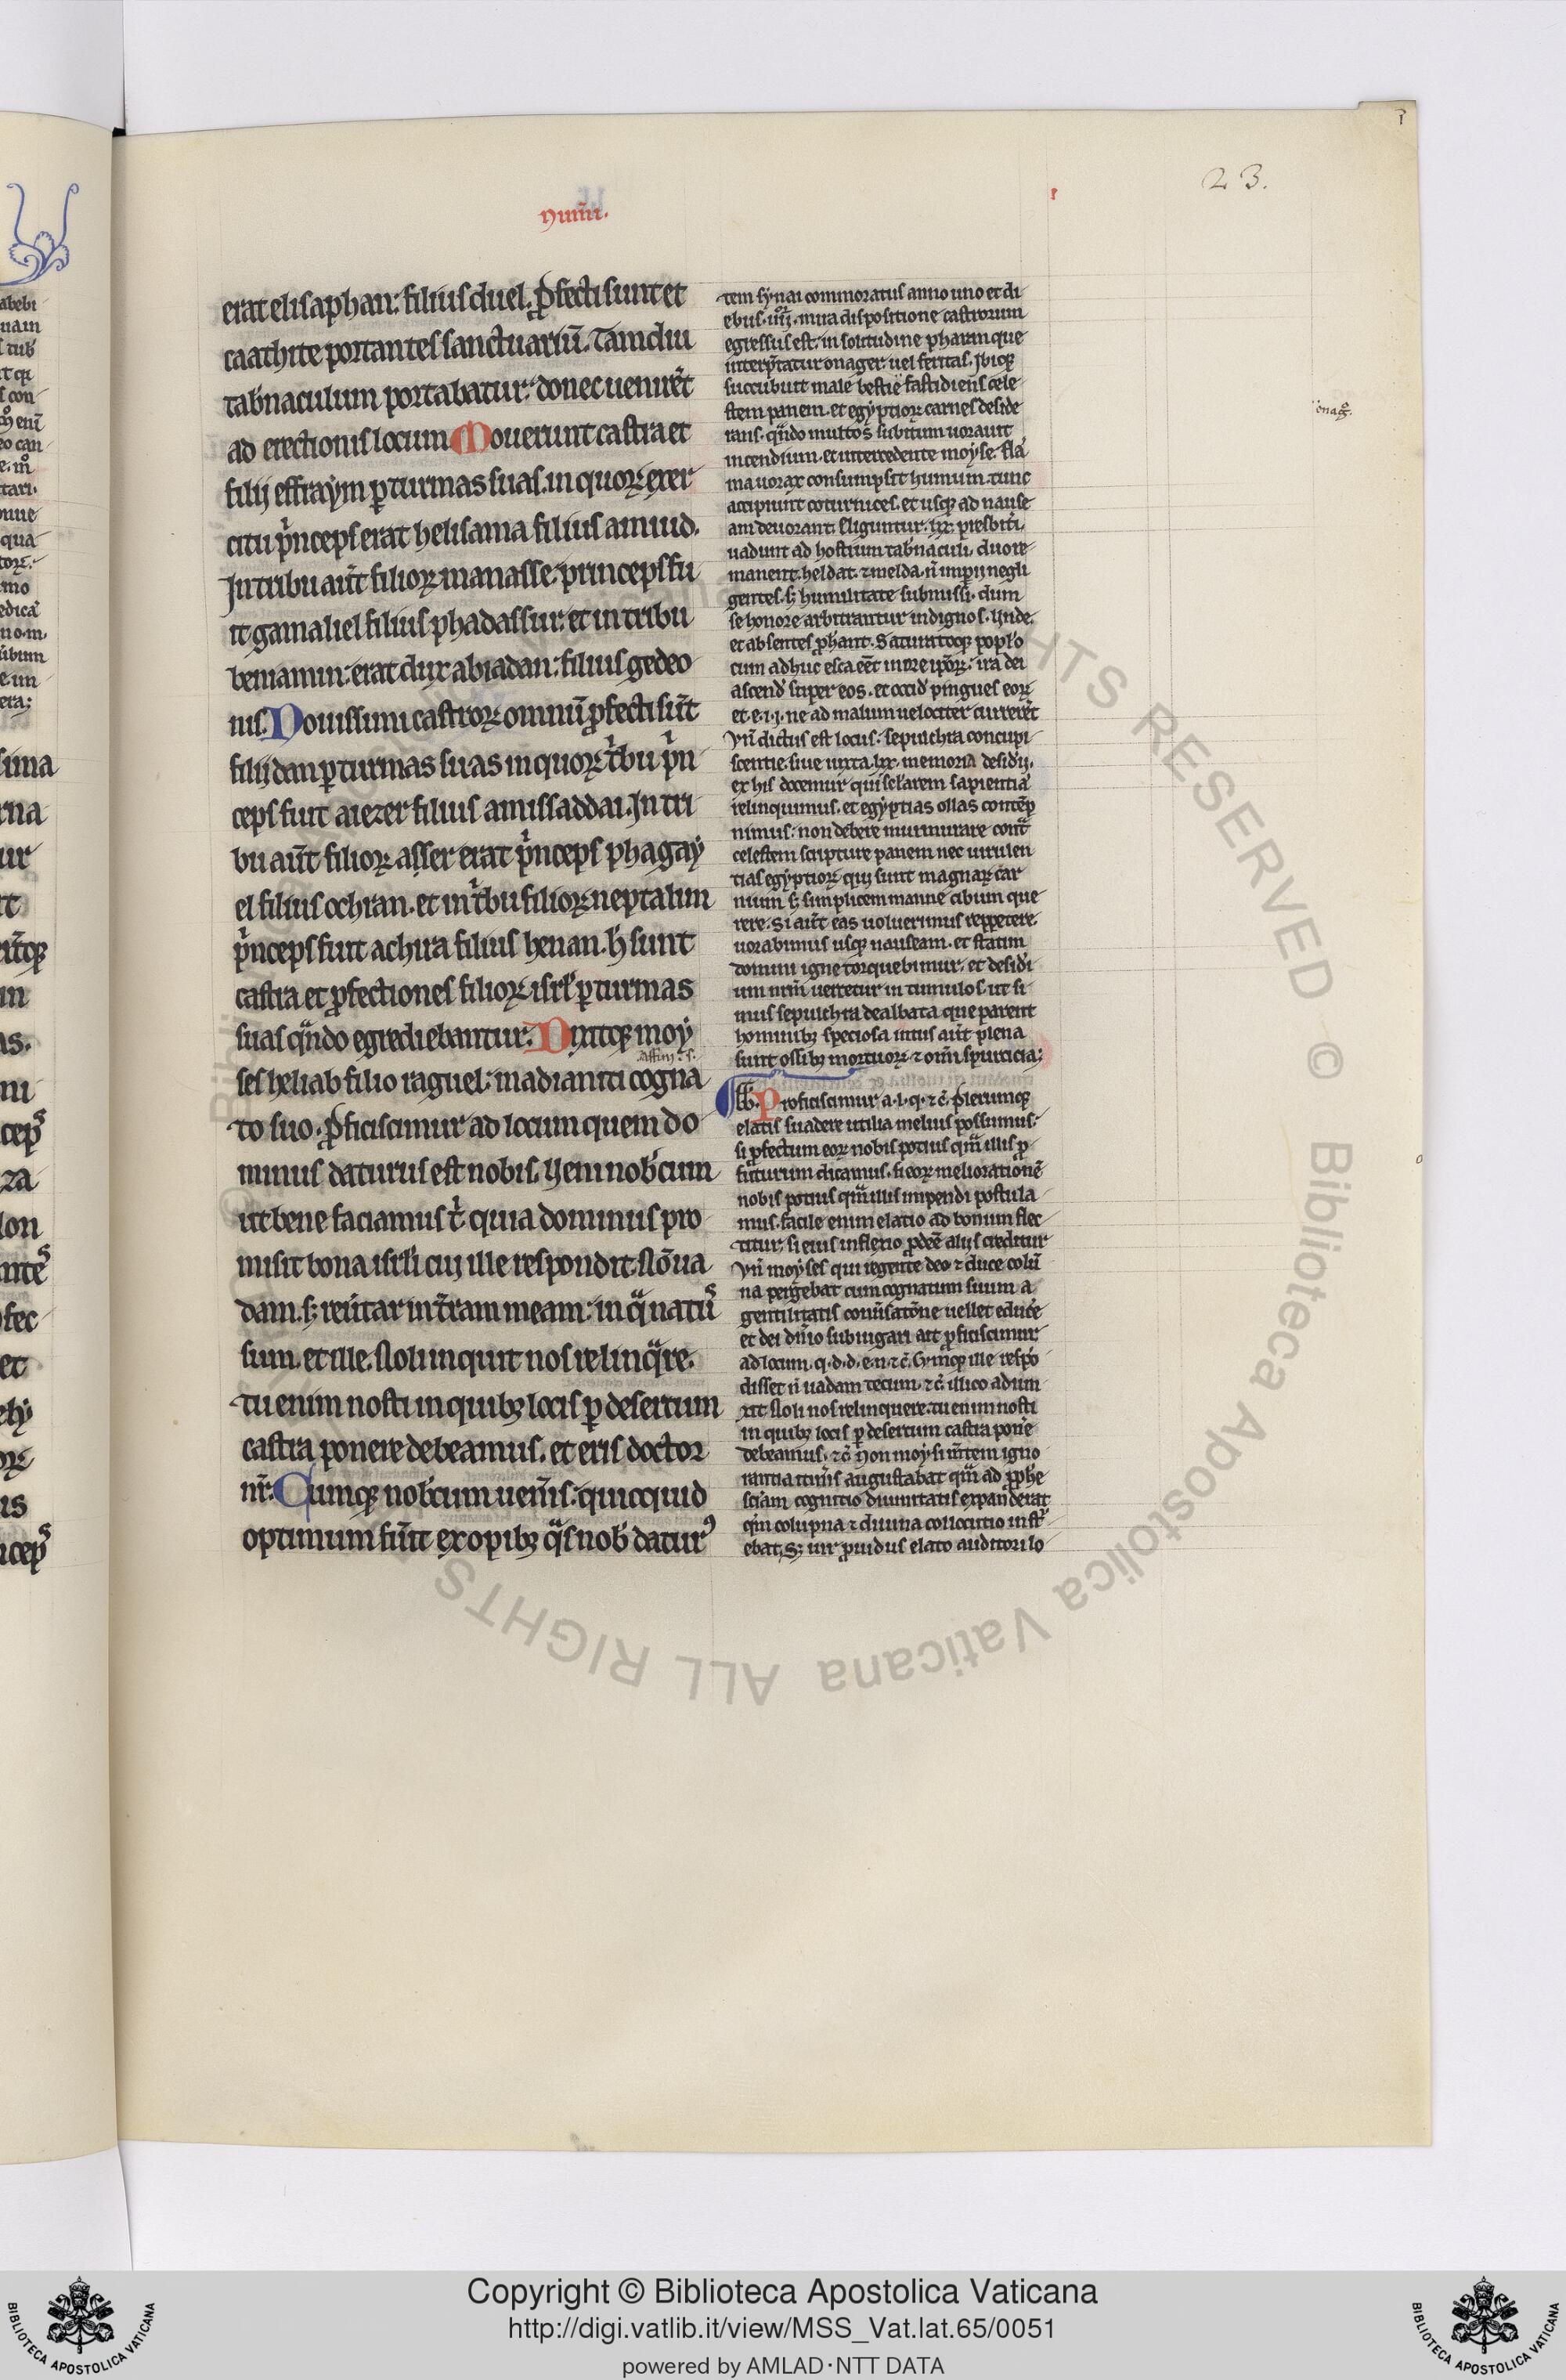 23.
Num̄.
erat elisaphan: filius duel. ꝓfecti sunt et
caathite portantes sanctuariū. Tamdiu
tab̾naculum portabatur: donec uenirēt
ad erectionis locum Mouerunt castra et
filij effraym ꝑ turmas suas. in quoꝝ exer
citu p̾nceps erat helisama filius amiud.
In tribu aūt filioꝝ manasse. princeps fu
it gamaliel filius phadassur. et in tribu
beniamin: erat dux abiadan: filius gedeo
nis. Nouissimi castroꝝ omniū ꝓfecti sūt
filij dan ꝑ turmas suas in quoꝝ t̾bu p̾n
ceps fuit aiezer filius amissaddai. In tri
bu aūt filioꝝ asser erat p̾nceps phagay
el filius ochran. et in t̾bu filioꝝ neptalim
p̾nceps fuit achira filius henan. h̄ sunt
castra et ꝓfectiones filioꝝ isrl̾ ꝑ turmas
suas qn̄do egrediebantur. Dixitqꝫ moy
ses heliab filio raguel: madianiti cogna
to suo. ꝓficiscimur ad locum quem do
minus daturus est nobis. Ueni nob̾cum
ut bene faciamus t̾ quia dominus pro
misit bona isrl̾i cui ille respondit. Nō ua
dam. sꝫ reūtar in t̄ram meam: in qͣ natꝰ
sum. et ille. Noli inquit nos relinqͣre.
tu enim nosti in quibꝫ locis ꝑ desertum
castra ponere debeamus. et eris doctor
nr̄. Cumqꝫ nob̾cum uen̾is: quicquid
optimum fu̾it ex opibꝫ qͣs nob̾ daturꝰ
tem synai commoratus anno uno et di
ebus .iiij. mira dispositione castrorum
egressus est. in solitudine pharan que
interp̾tatur onager. uel feritas. Ibiqꝫ
succubuit male bestie fastidiens cele
stem panem. et egyptioꝝ carnes deside
rans. qn̄do multos subitum uorauit
incendium. et intercedente moyse. flā
ma uorax consumpsit humum. tunc
accipiunt coturnices. et usqꝫ ad nause
am deuorant. Eliguntur .lxx. presbit̾i.
uadunt ad hostium tab̾naculi. duo re
manent. heldat. ⁊ melda. n̄ imp̾ij negli
gentes. sꝫ humilitate submissi. dum
se honore arbitrantur indignos. Unde.
et absentes ꝓphant. Saturatoqꝫ poplo
cum adhuc esca eēt in ore ip̄oꝝ: ira dei
ascend̾ super eos. et occid̾ pingues eoꝝ
et.e.i.i. ne ad malum uelociter currerēt
Vn̄ dictus est locus: sepulchra concupi
scentie. siue iuxta .lxx. memoria desid̾ij.
ex his docemur qui sclarem sapientiā
relinquimus. et egyptias ollas contēp
nimus: non debere murmurare contͣ
celestem scripture panem nec uirulen
tias egyptioꝝ qui sunt magnaꝝ car
nium sꝫ simplicem manne cibum que
rere. Si aūt eas uoluerimus reppetere
uorabimus usqꝫ nauseam. et statim
domini igne torquebimur. et desid̾i
um nr̄m uertetur in tumulos. ut si
mus sepulchra dealbata que parent
hominibꝫ speciosa. intus aūt plena
sunt ossibꝫ mortuoꝝ ⁊ om̄i spurcicia;
Proficiscimur a.l.q. ⁊c̄. Plerumqꝫ
elatis suadere utilia melius possumus:
si ꝓfectum eoꝝ nobis potius qͣm illis ꝓ
futurum dicamus. si eoꝝ meliorationē
nobis potius qͣm illis impendi postula
mus. facile enim elatio ad bonum flec
titur. si eius inflexio ꝓdeē alijs creditur
Vn̄ moyses qui regente deo ⁊ duce colū
na pergebat cum cognatum suum a
gentilitatis conu̾satōne uellet educ̾e
et dei dn̄io subiugari ait ꝓficiscimur
ad locum .q.d.d.e.n. ⁊c̄. Cumqꝫ ille respō
disset n̄ uadam tecum. ⁊c̄ illico adiun
xit Noli nos relinquere. tu enim nosti
in quibꝫ locis ꝑ desertum castra pon̾e
debeamus. ⁊c̄ Non moysi m̄tem igno
rantia itin̾is angustabat qͣm ad ꝓphe
sciam cognitio diuinitatis expanderat
qͣm colupna ⁊ diuina collocutio inst̾
ebat. Sꝫ uir ꝓuidus elato auditori lo
Copyright © Biblioteca Apostolica Vaticana
http://digi.vatlib.it/view/MSS_Vat.lat.65/0051
powered by AMLAD·NTT DATA
BIBLIOTECA APOSTOLICA VATICANA
BIBLIOTECA APOSTOLICA VATICANA
© Biblioteca Apostolica Vaticana ALL RIGHTS RESERVED